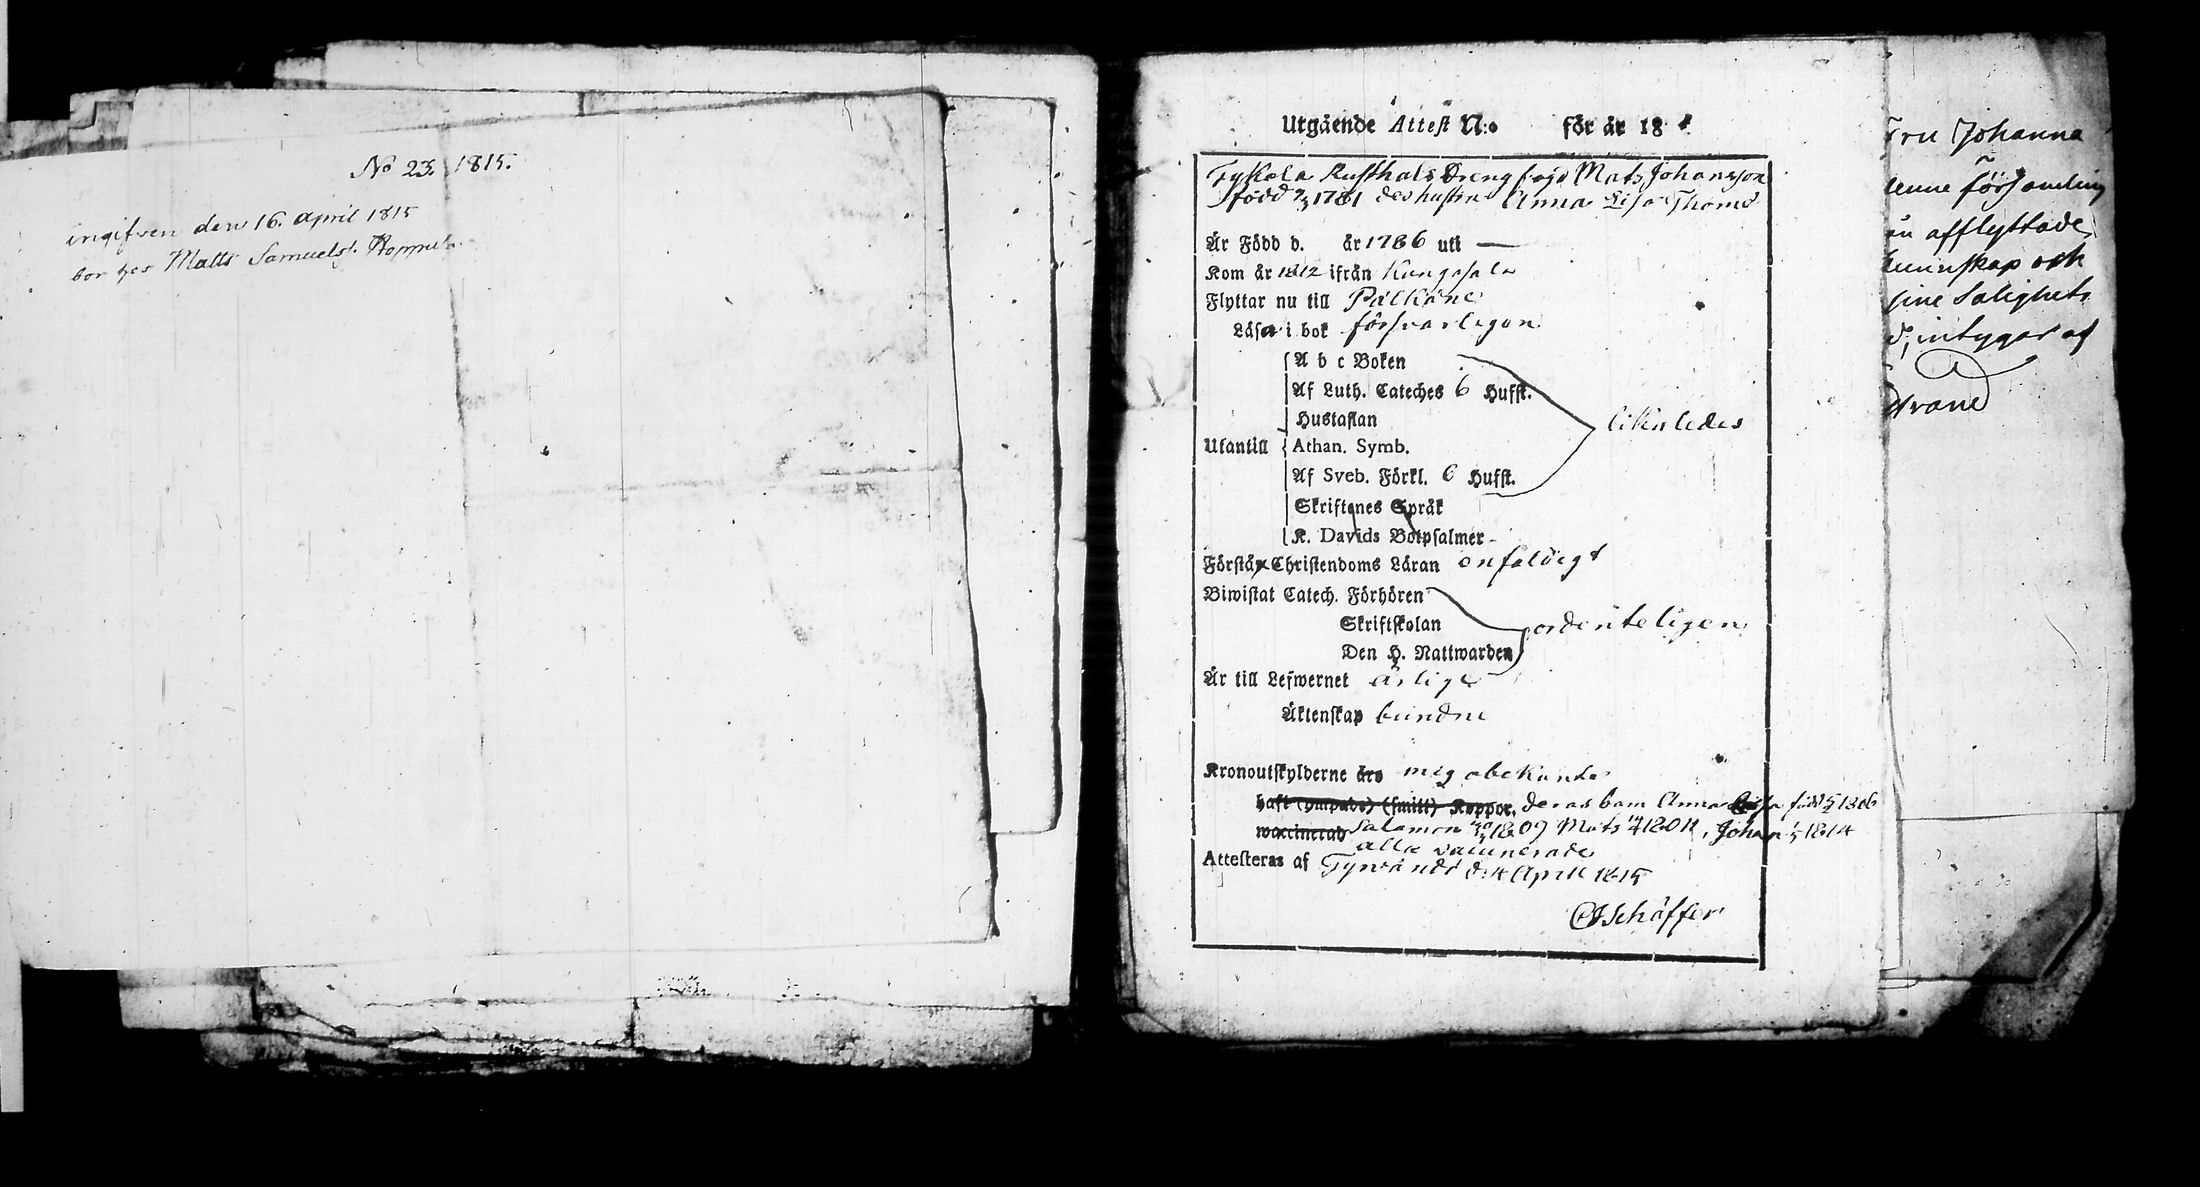 No 23. 1815.
ingifven den 16. April 1815
bor hos Matts Samuels:
Utgående Attest N:o för år 18
Tykola Rusthåls Dreng Mats Johansson
född 1781 des hustru Anna Lisa Thoms
Är Född d. år 1786 uti —
Kom år 1812 ifrån Kangasala
Flyttar nu till Pälkäne
Läsa i bok försvarligen
A b c Boken
Af Luth. Cateches 6 Hufst.
Hustaflan
likaledes
Utantill Athan. Symb.
Af Sveb. Förkl. 6 Hufst.
Skriftenes Språk
K. Davids Botpsalmer
Förstå Christendoms Läran enfaldigt
Biwistat Catech. Förhören
Skriftskolan ordenteligen
Den H. Nattwarden
Är till Lefwernet ärlige
Äktenskap bundne
Kronoutskylderne äro mig obekanta
haft (ympade) (smitt) Koppor. deras barn Anna Lisa född 1806
waccinerad Salamon 1809 Mats, Johan 1814
alla vaccinerade
Attesteras af Tyrvändö d: 14 April 1815
Schäffer
Fru Johanna
denne församling
afflyttade
kunskap och
sine Salighets
intygar af